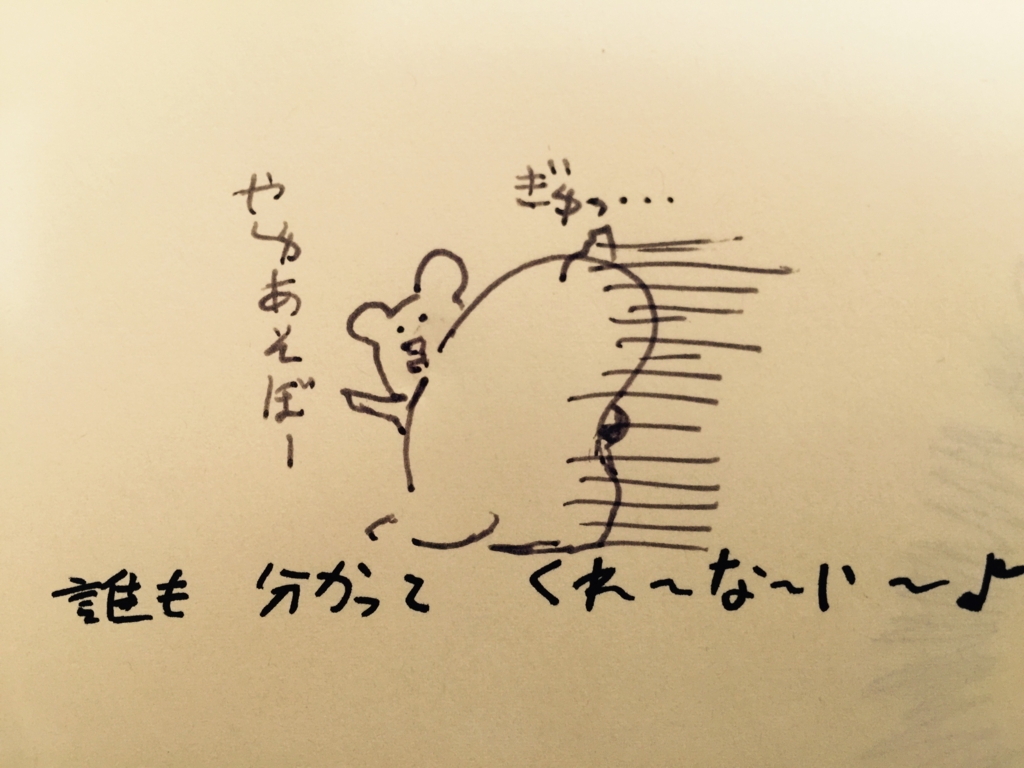 ぎゅっ・・・
やゆあそぼー
誰も 分かって くれ〜な〜い〜♪